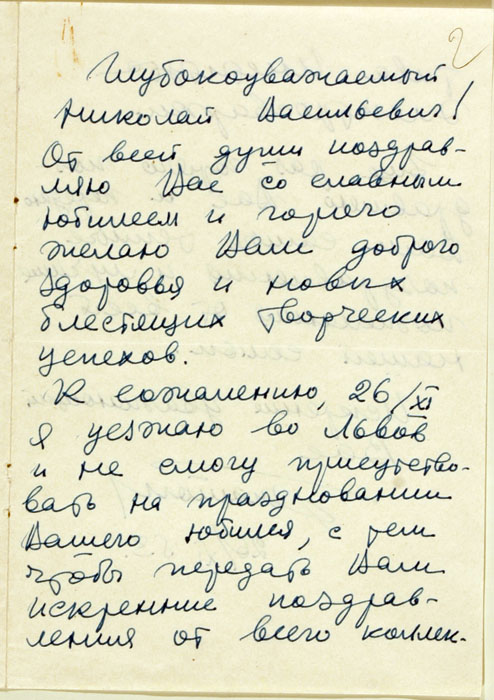 2
Глубокоуважаемый
Николай Васильевич!
От всей души поздрав-
ляю Вас со славным
юбилеем и горячо
желаю Вам доброго
здоровья и новых
блестящих творческих
успехов.
К сожалению, 26/XI
я уезжаю во Львов
и не смогу присутство-
вать на праздновании
Вашего юбилея, с тем
чтобы передать Вам
искренние поздрав-
ления от всего коллек-